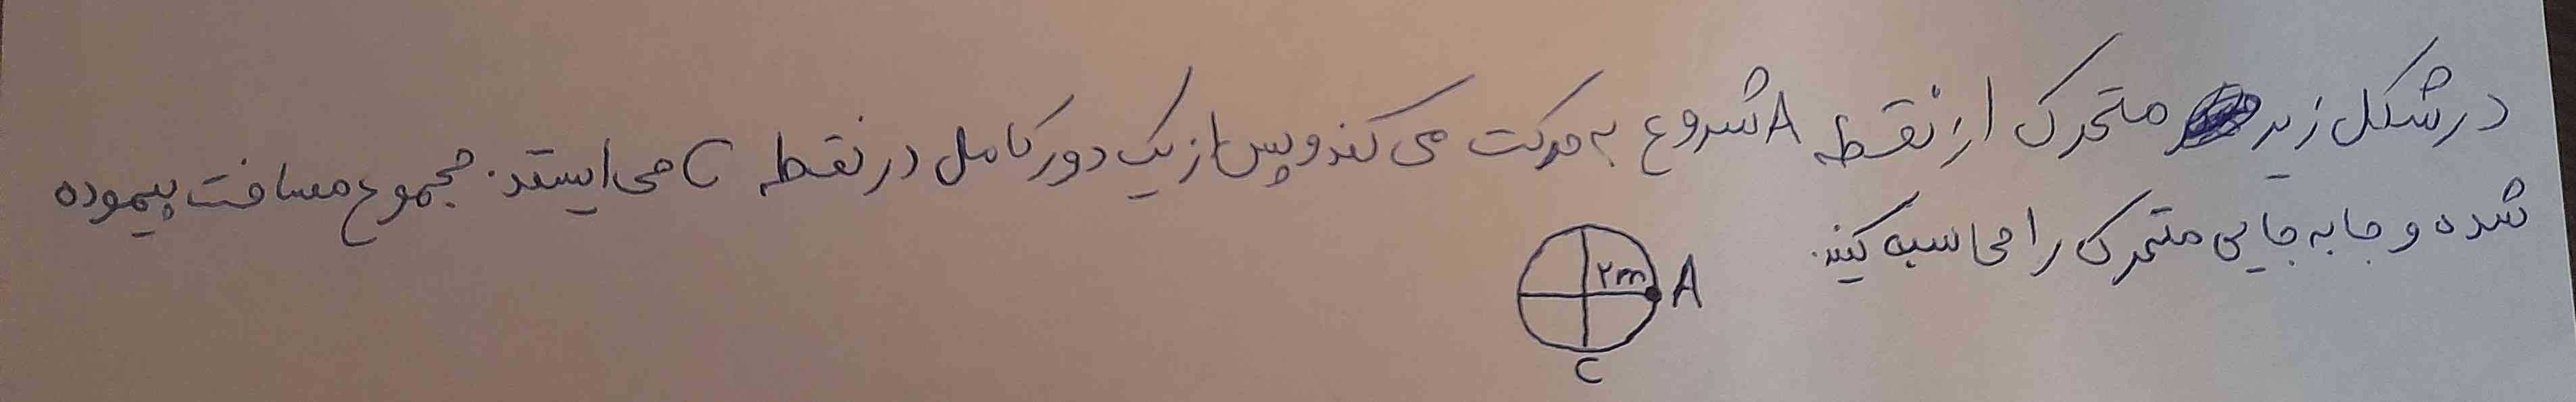 در شکل زیر متحرک از نقطه A شروع به حرکت می کند و پس از یک دور کامل در نقطه C می ایستد. مجموع مسافت پیموده
شده و جابه جایی متحرک را محاسبه کنید.
۲m A
C